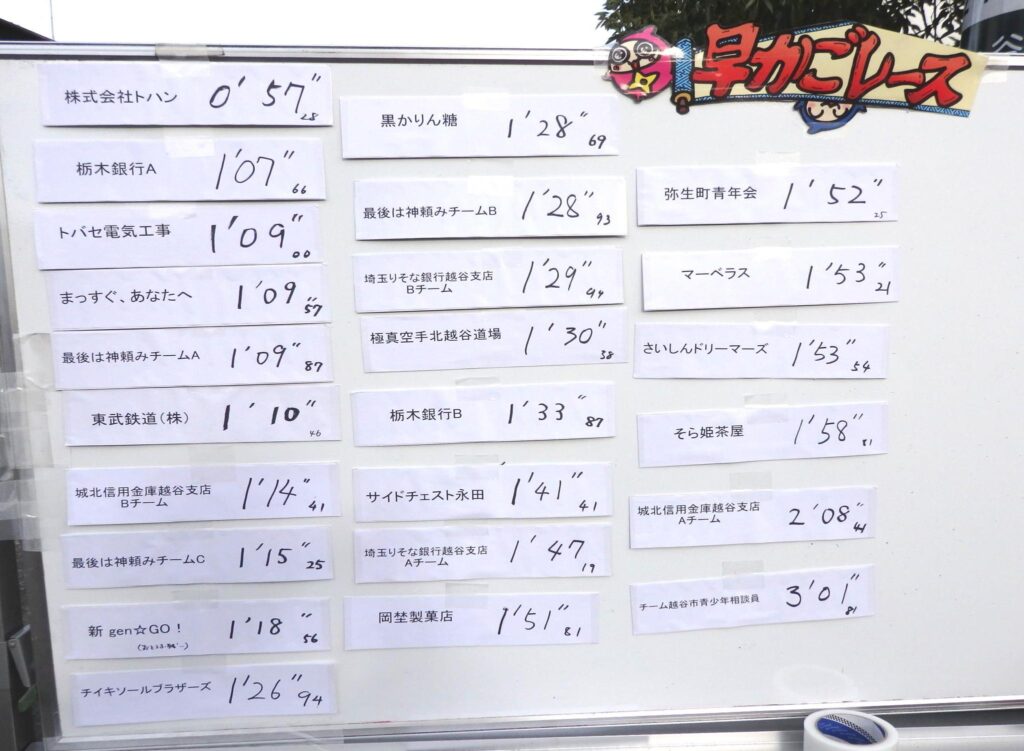 早かごレース
株式会社トハン 0'57"28
栃木銀行A 1'07"66
トバセ電気工事 1'09"00
まっすぐ、あなたへ 1'09"57
最後は神頼みチームA 1'09"87
東武鉄道(株) 1'10"46
城北信用金庫越谷支店
Bチーム 1'14"41
最後は神頼みチームC 1'15"25
新 gen☆GO! 1'18"56
チイキソールブラザーズ 1'26"94
黒かりん糖 1'28"69
最後は神頼みチームB 1'28"93
埼玉りそな銀行越谷支店
Bチーム 1'29"94
極真空手北越谷道場 1'30"38
栃木銀行B 1'33"87
サイドチェスト永田 1'41"41
埼玉りそな銀行越谷支店
Aチーム 1'47"19
岡埜製菓店 1'51"81
弥生町青年会 1'52"25
マーベラス 1'53"21
さいしんドリーマーズ 1'53"54
そら姫茶屋 1'58"81
城北信用金庫越谷支店
Aチーム 2'08"44
チーム越谷市青少年相談員 3'01"81